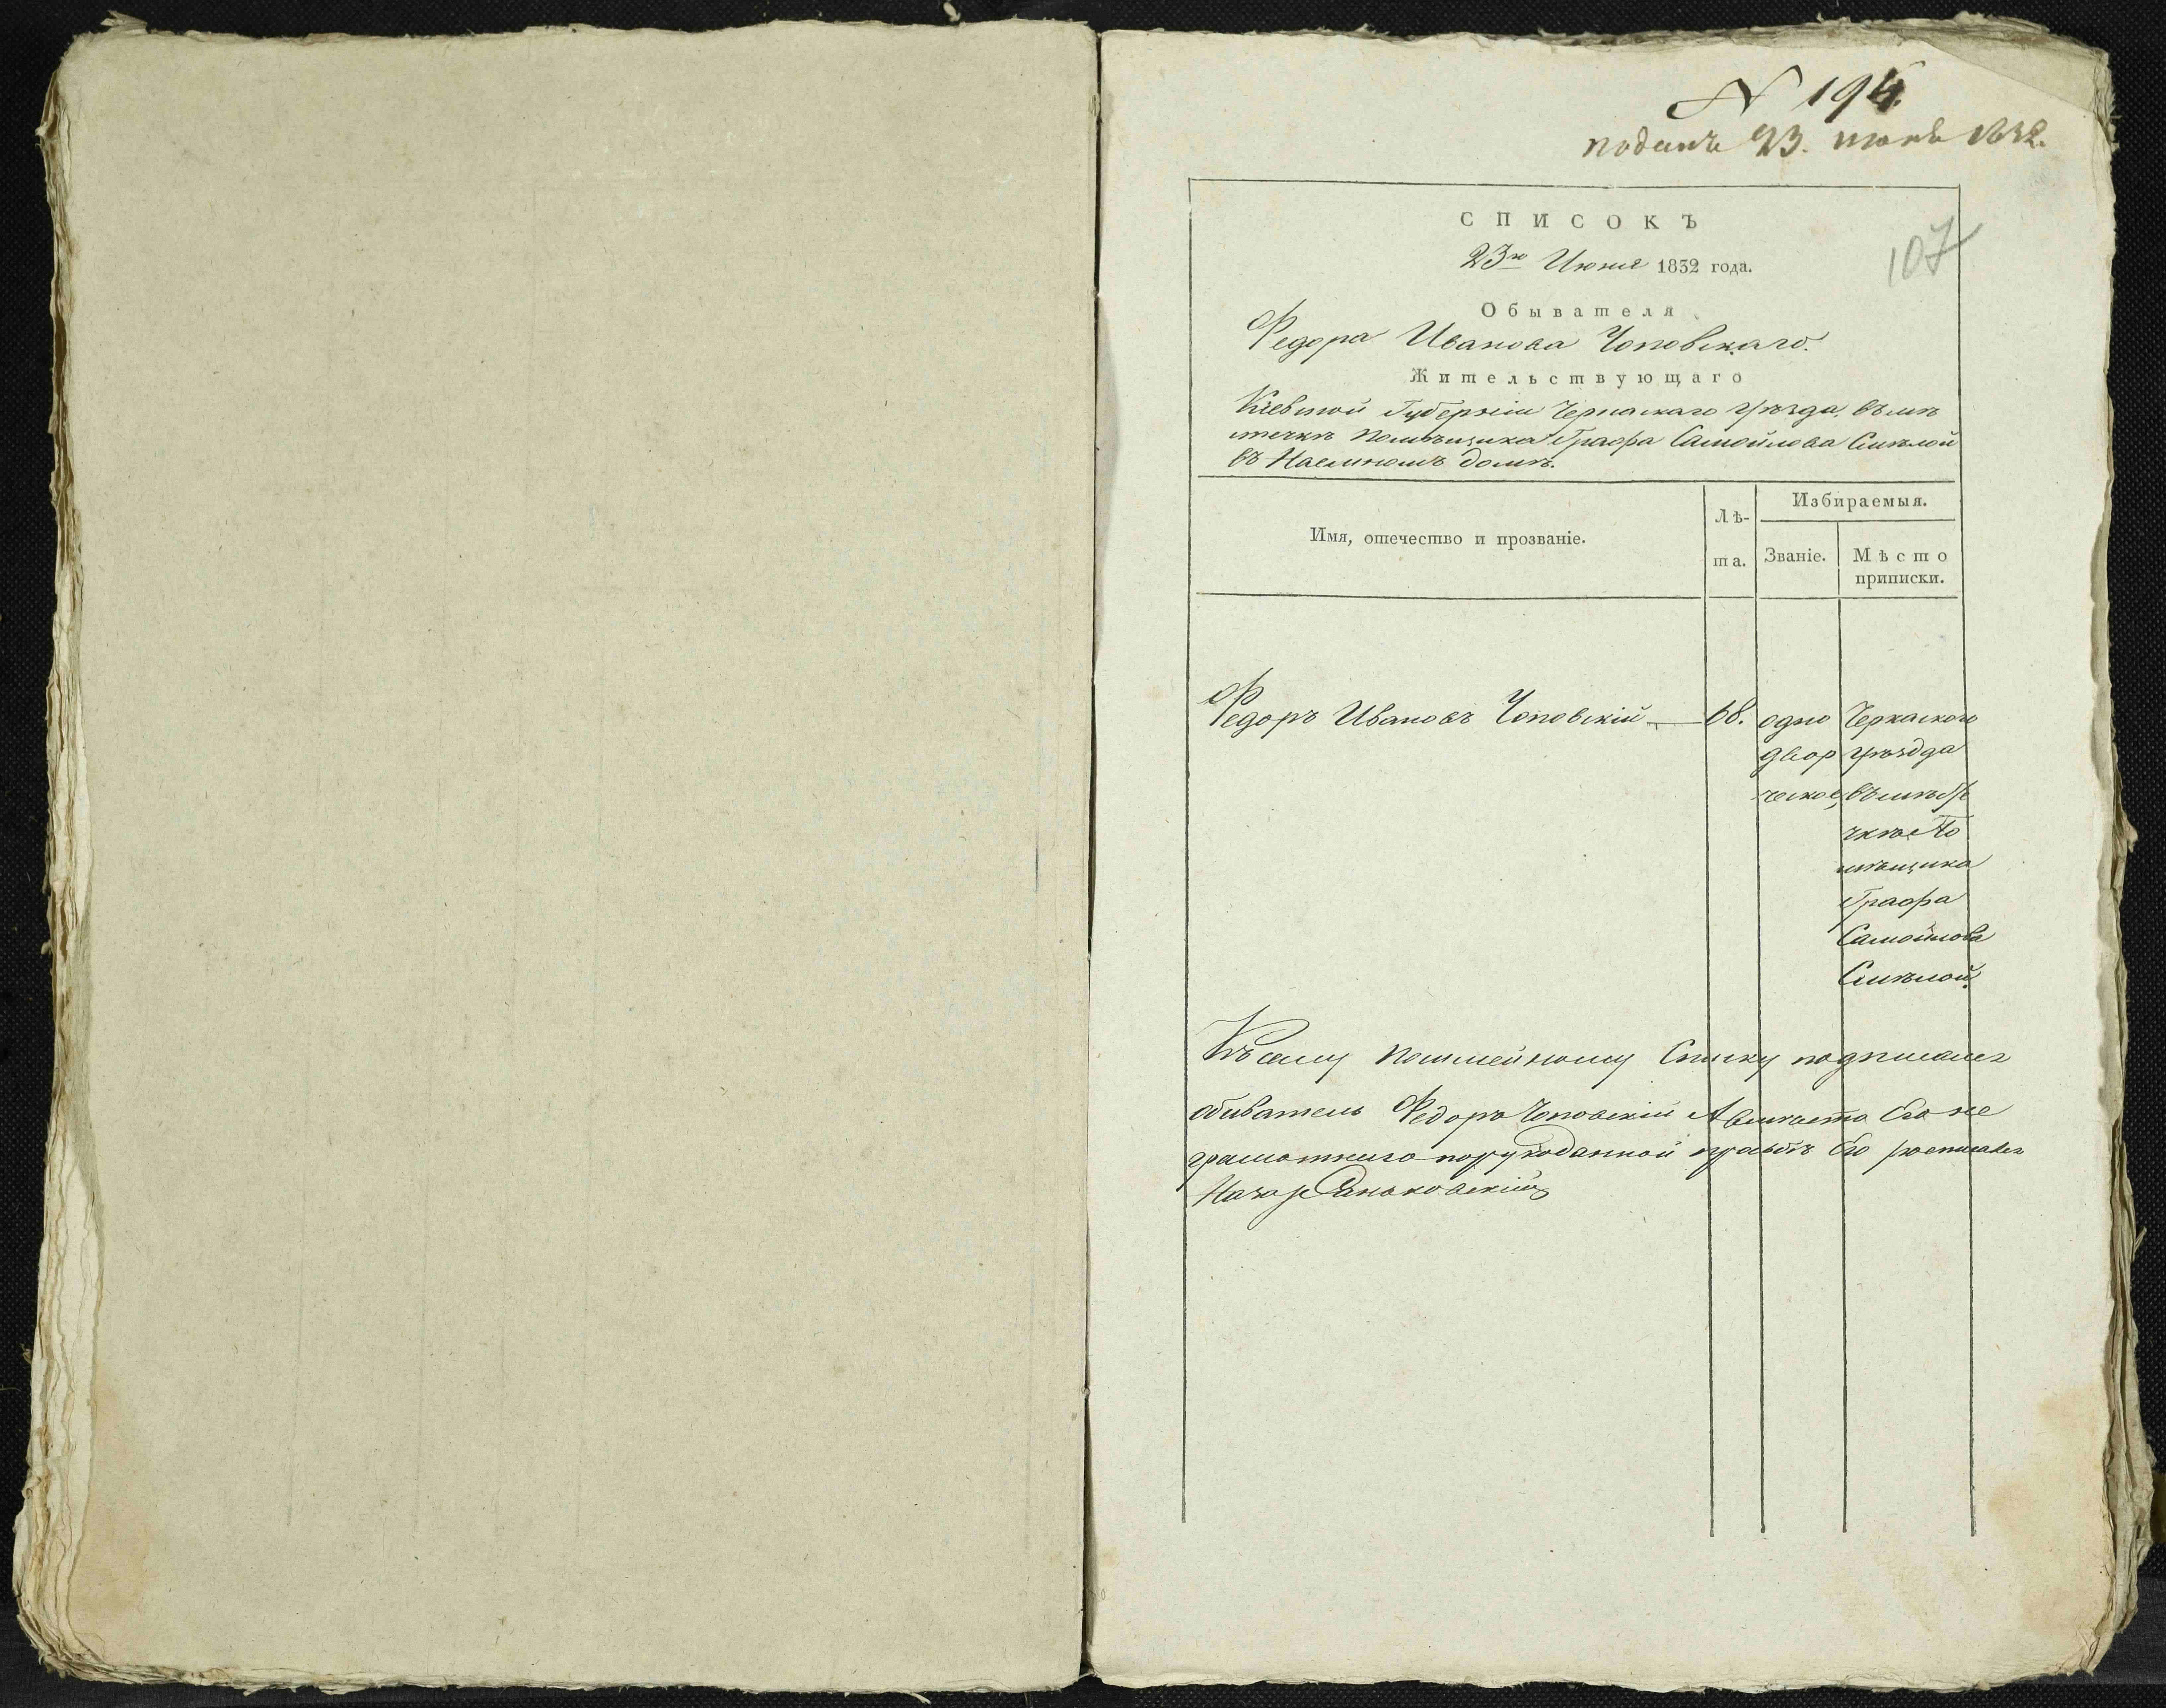 N 194.
поданъ 23. июня 1832.
107
СПИСОКЪ
23го Июня 1832 года.
Обывателя
Федора Иванова Чоповскаго.
Жительствующаго
Киевской Губерніи Черкаскаго уѣзда, въ мѣ
стечкѣ помѣщика Графа Самойлова Смѣлой
въ Наемномъ домѣ.
Имя, отечество и прозваніе.
Лѣ-
та.
Избираемыя.
Званіе.
Мѣсто
приписки.
Федоръ Ивановъ Чоповскій 68. одно Черкаского
двор уѣзда
ческое, въ мѣсте
чкѣ По
мѣщика
Графа
Самойлова
Смѣлой.
Къ сему Посмейному Списку подписался
обиватель Федоръ Чоповскій А вместо Его не
грамотнего по рукоданной прозбѣ Его росписался
Назар